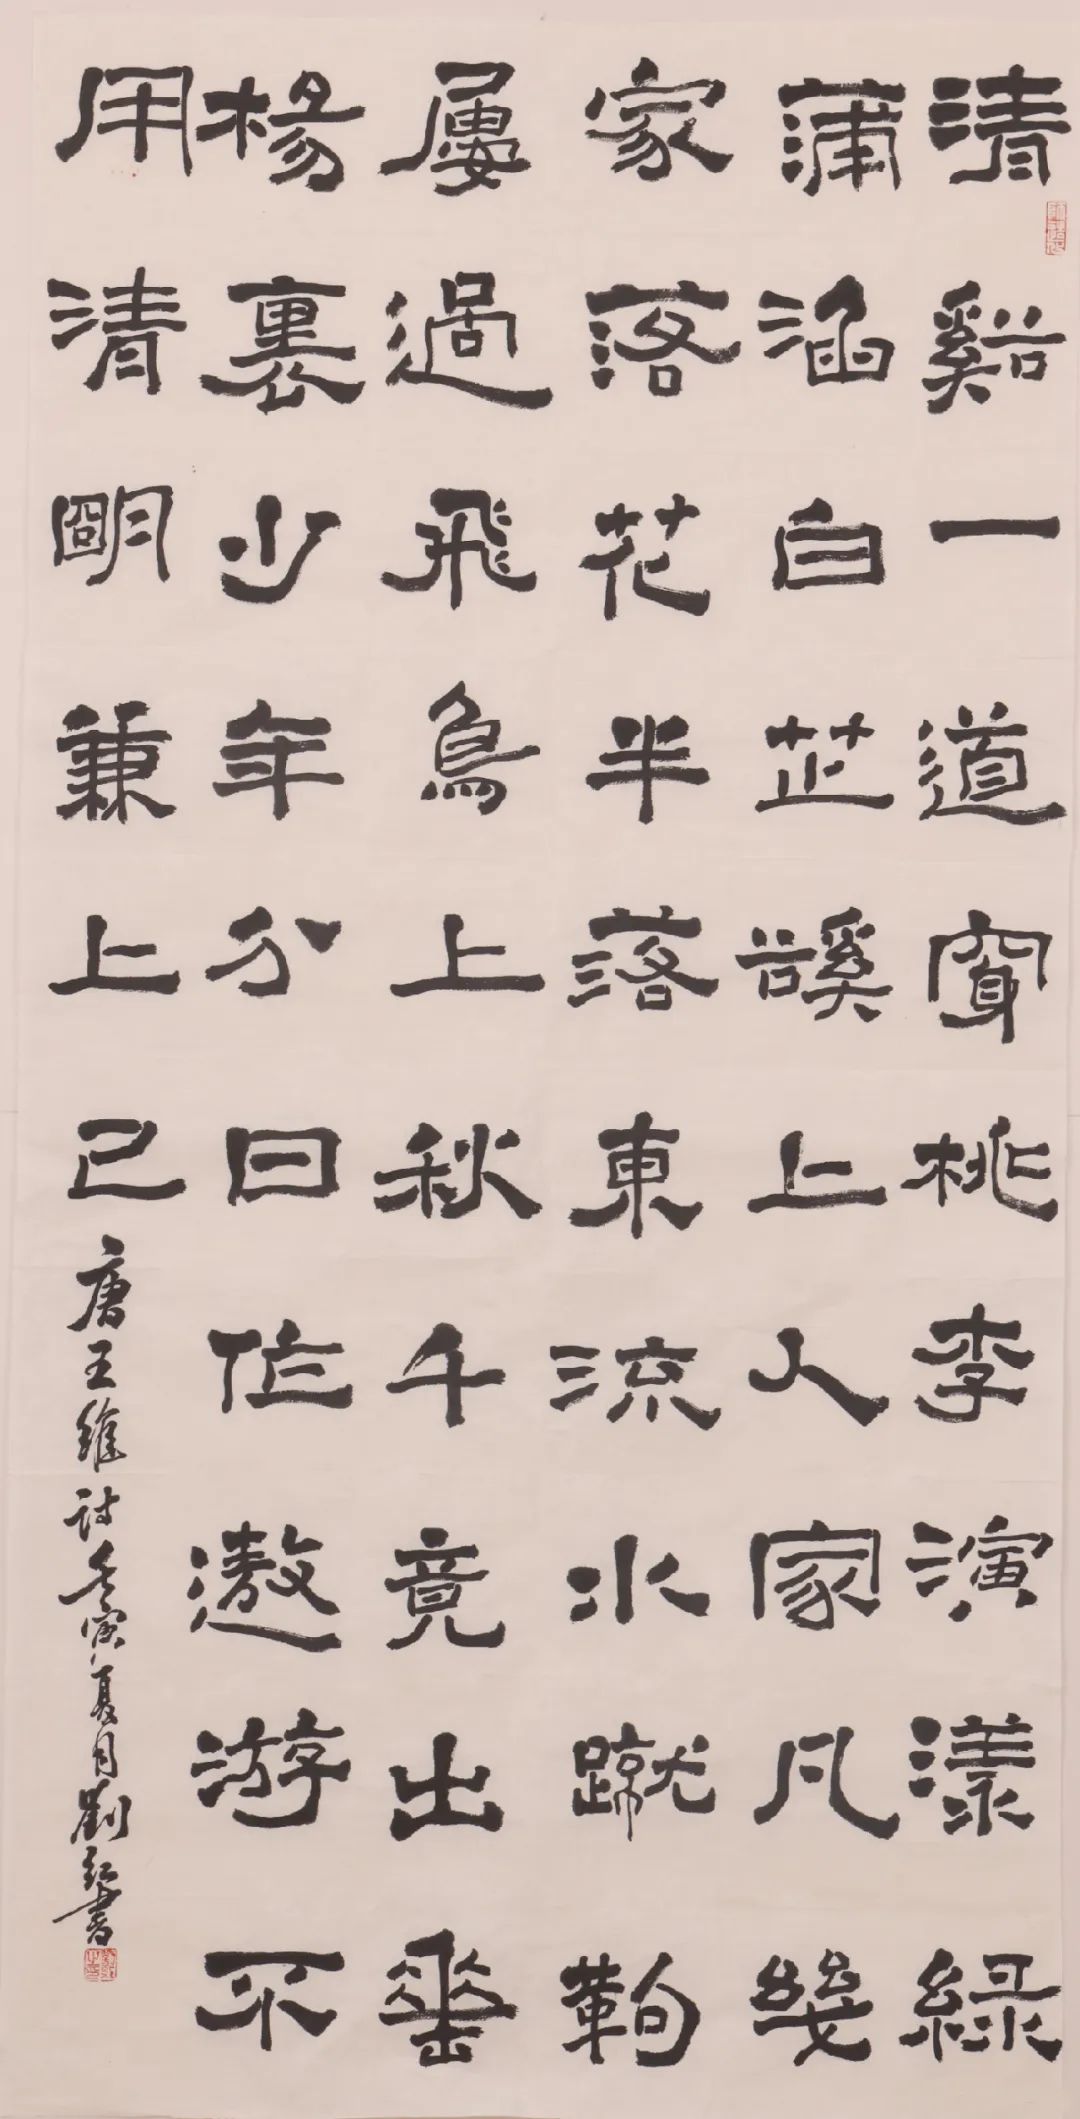 清谿一道穿桃李演漾綠
蒲涵白芷谿上人家凡幾
家落花半落東流水蹴鞠
屢過飛鳥上秋千竟出垂
楊裏少年分日作遨游不
用清朙兼上巳
唐王維詩壬寅夏月劉書